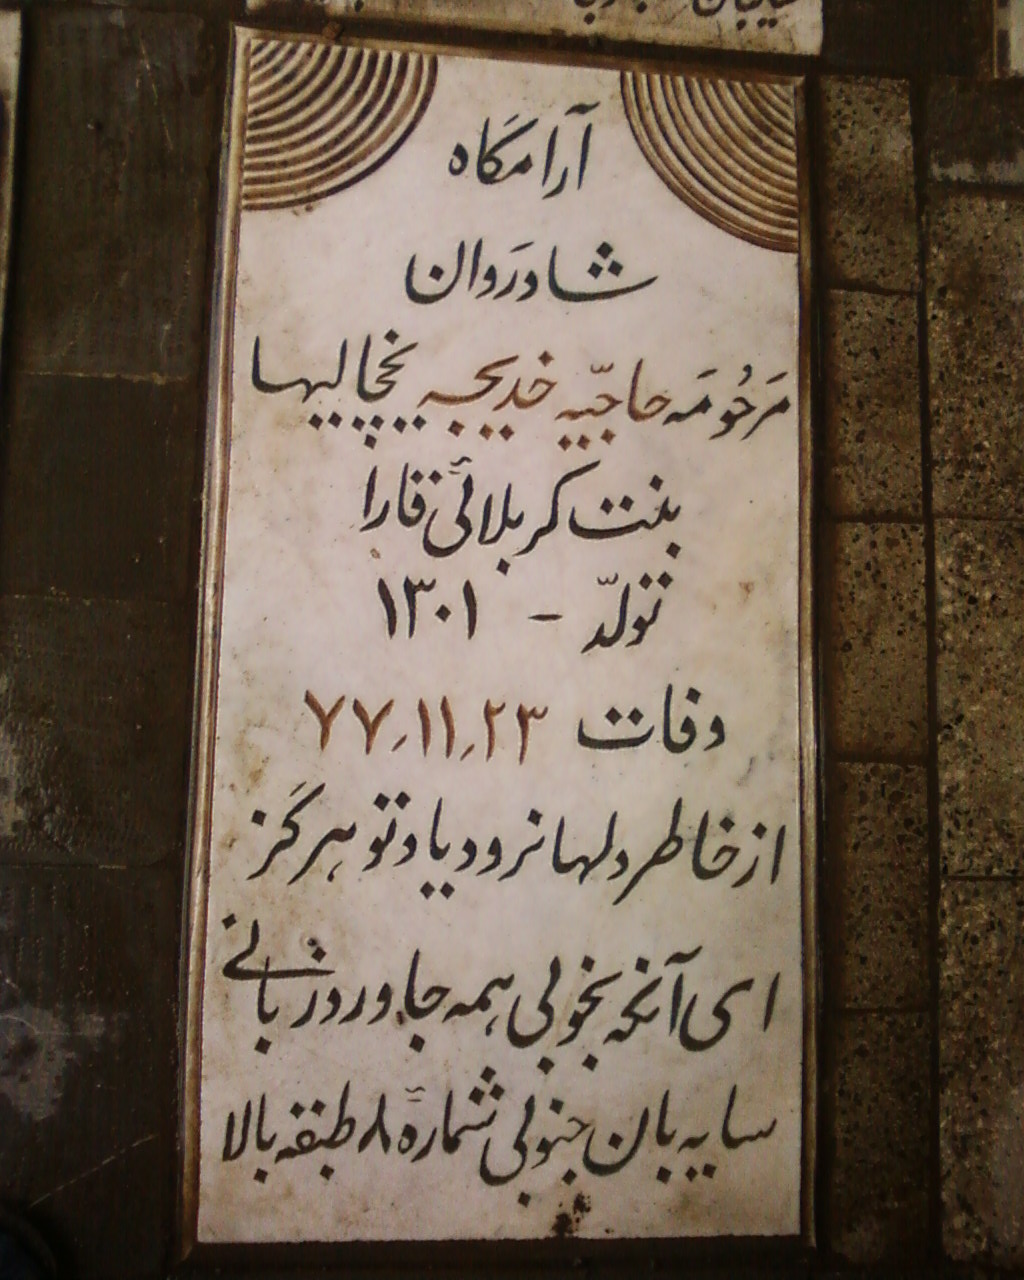 آرامگاه
شادروان
مرحُومَه حاجیّه خدیجه یخچالیها
بنت کربلائی قارا
تولّد - ۱۳۰۱
وفات ۲۳٫۱۱٫۷۷
از خاطر دلها نرود یاد تو هرگز
ای آنکه بخوبی همه جا ورد زبانی
سایه بان جنوبی شمارهٔ ۸ طبقه بالا